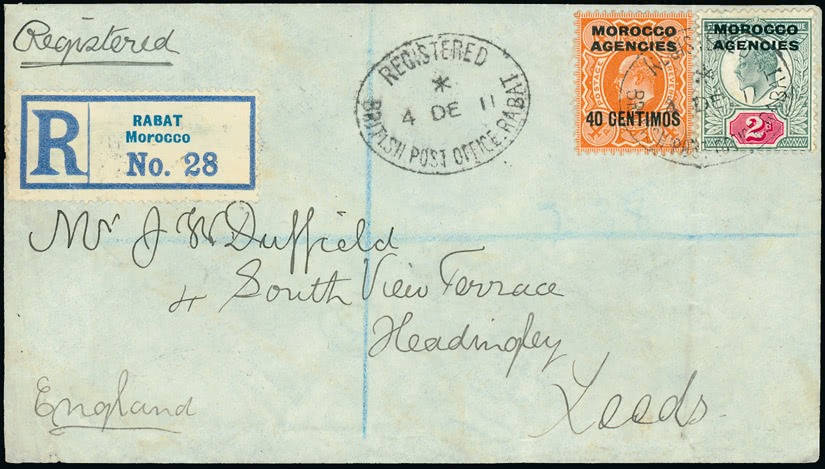 Registered
R
RABAT
Morocco
No. 28
REGISTERED
*
4 DE 11
BRITISH POST OFFICE. RABAT
MOROCCO
AGENCIES
POSTAGE
40 CENTIMOS
MOROCCO
AGENCIES
2D
Mr J W Duffield
4 South View Terrace
Headingley
Leeds
England